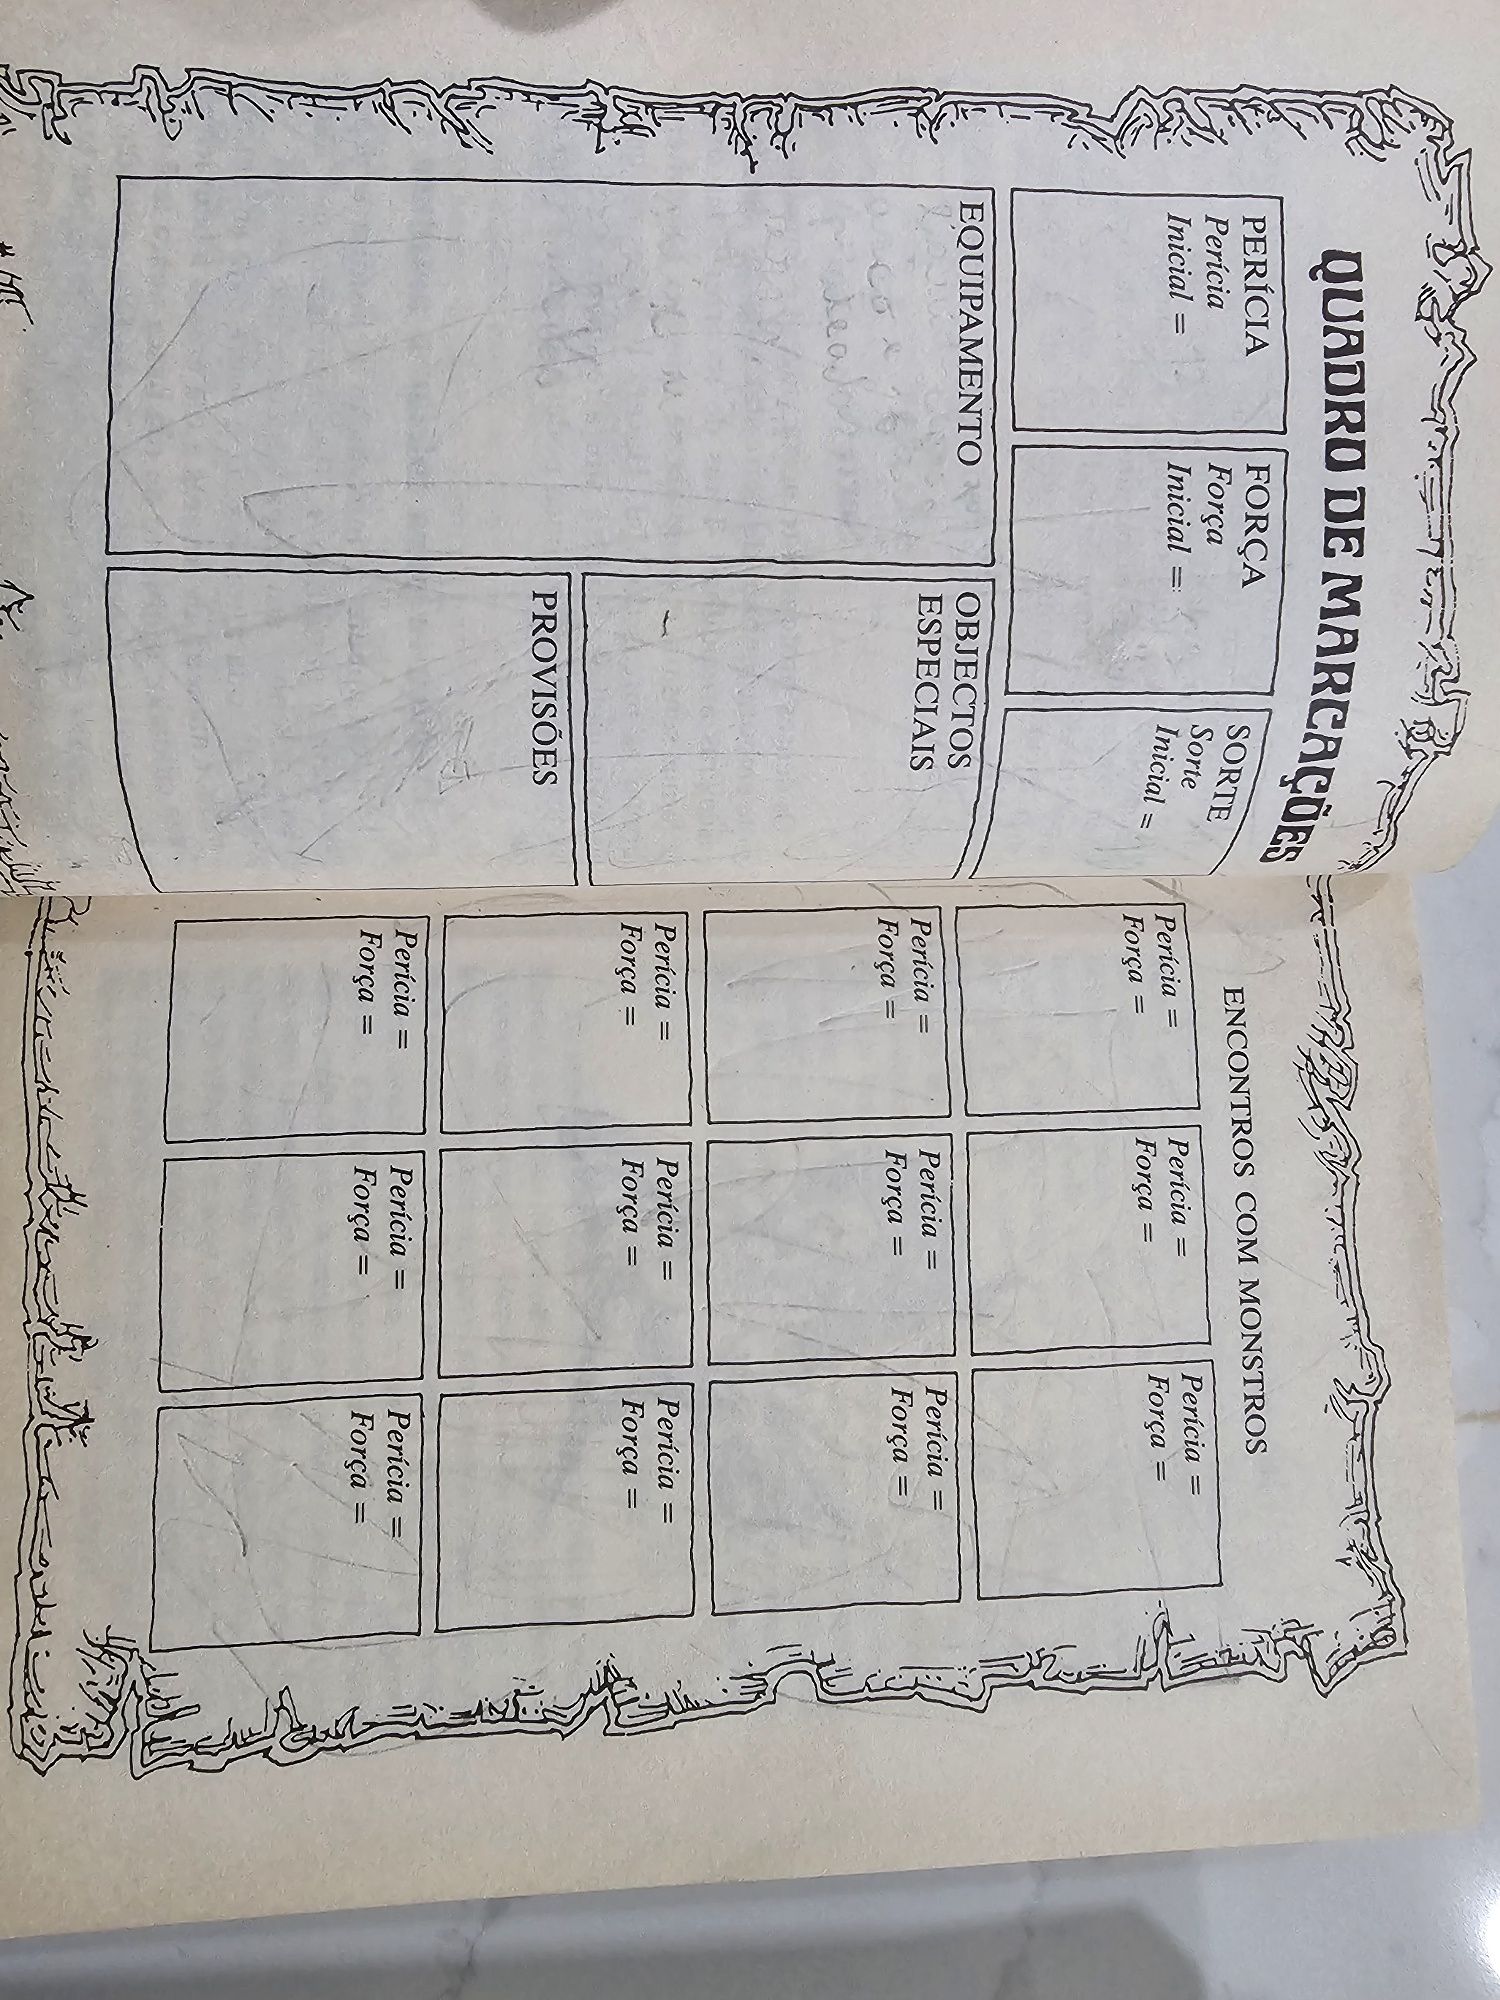 QUADRO DE MARCAÇÕES
PERÍCIA
Perícia
Inicial =
FORÇA
Força
Inicial =
SORTE
Sorte
Inicial =
EQUIPAMENTO
OBJECTOS
ESPECIAIS
PROVISÕES
ENCONTROS COM MONSTROS
Perícia =
Força =
Perícia =
Força =
Perícia =
Força =
Perícia =
Força =
Perícia =
Força =
Perícia =
Força =
Perícia =
Força =
Perícia =
Força =
Perícia =
Força =
Perícia =
Força =
Perícia =
Força =
Perícia =
Força =